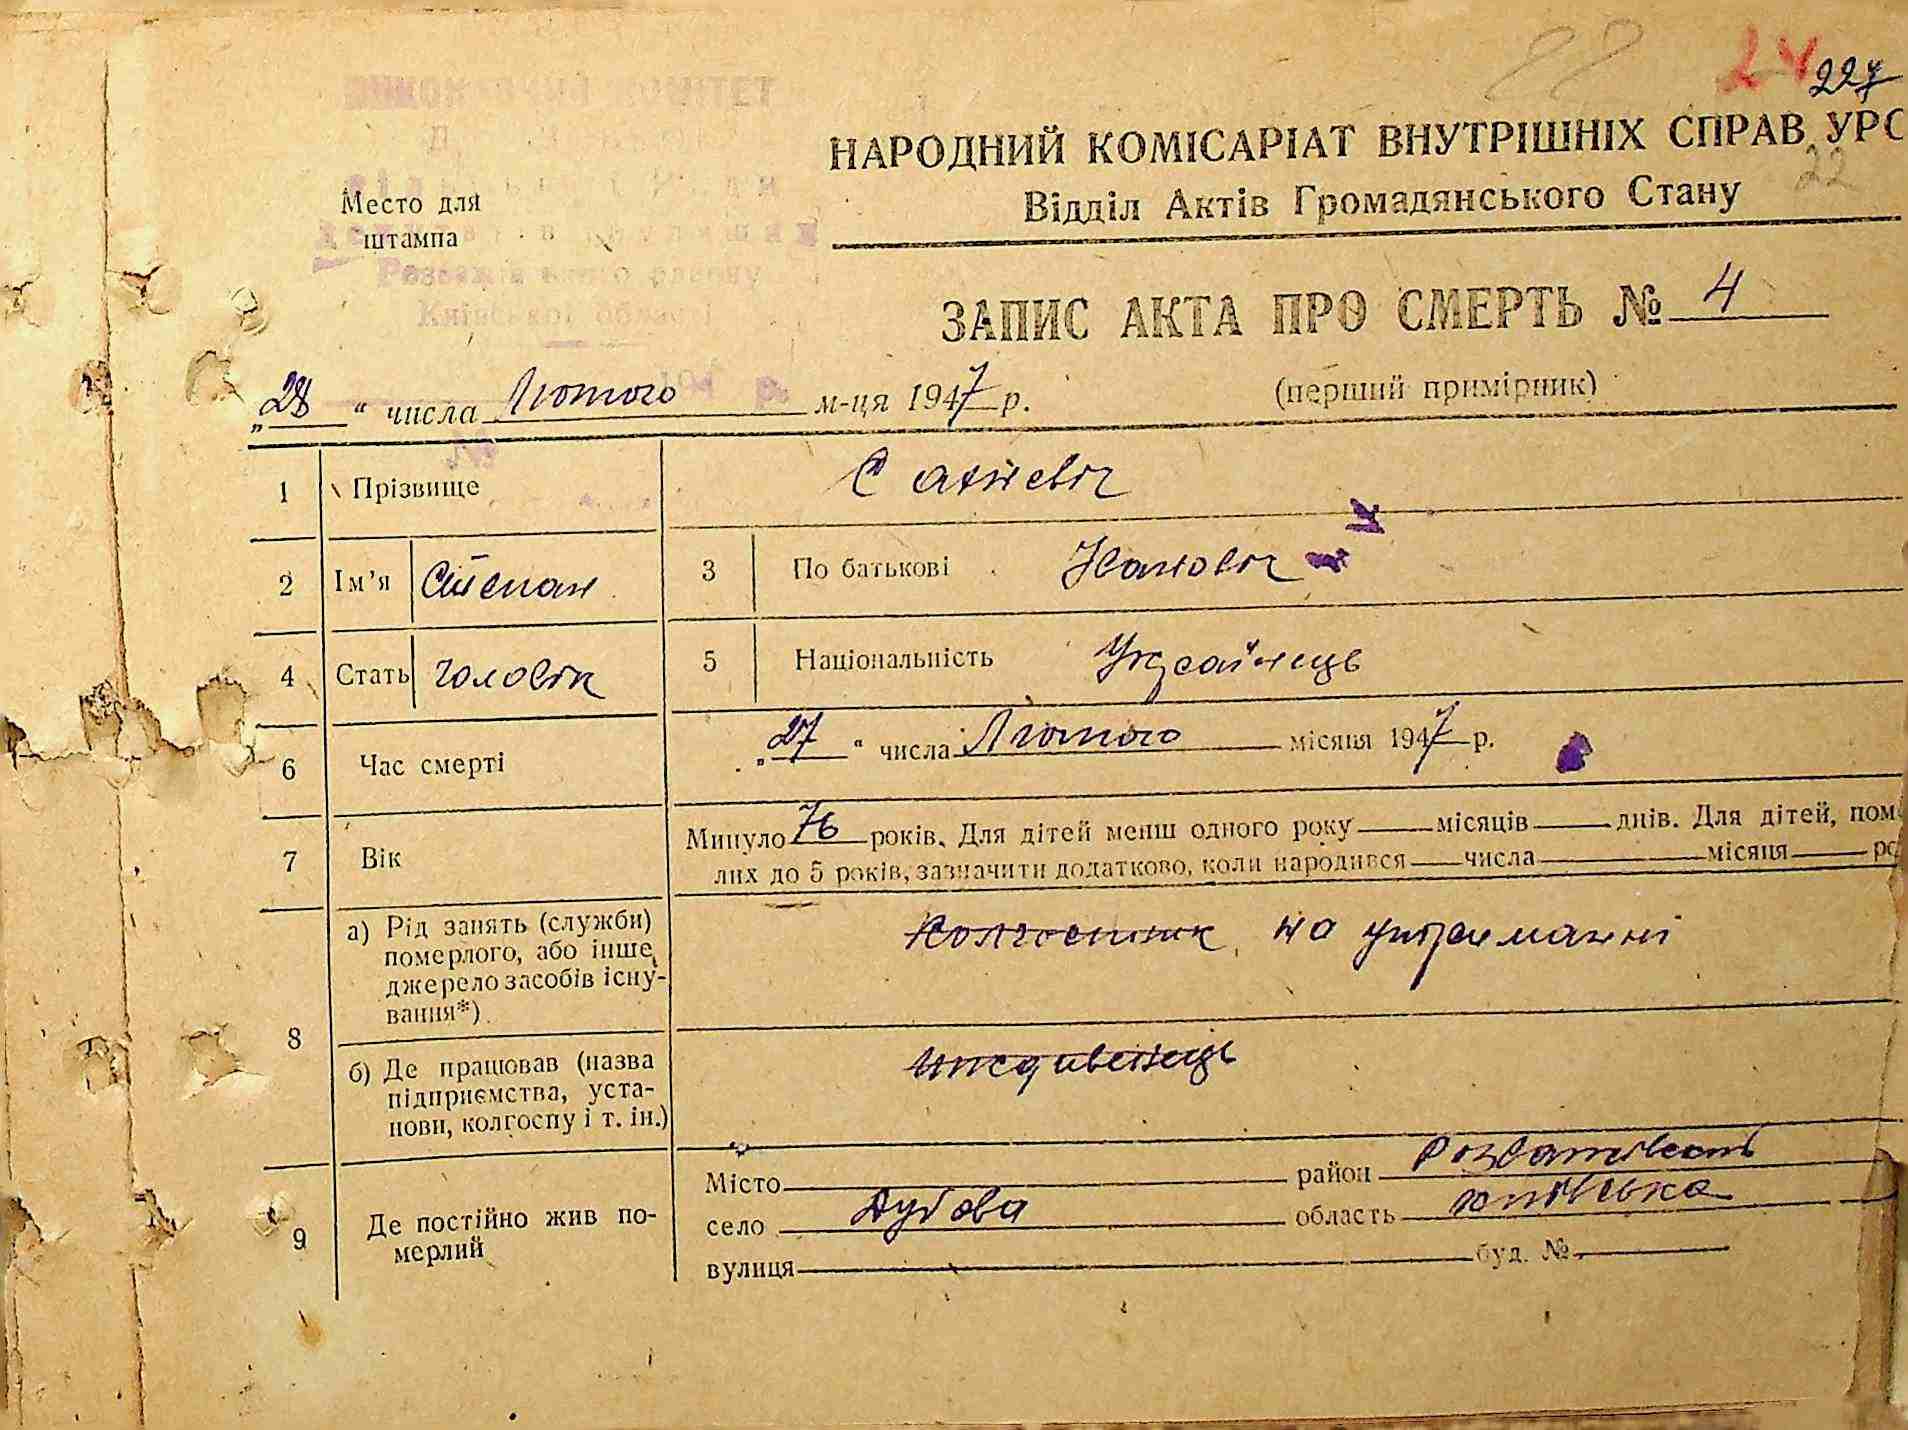 24 227
22
НАРОДНИЙ КОМІСАРІАТ ВНУТРІШНІХ СПРАВ УРС
Відділ Актів Громадянського Стану
Место для
штампа
Київської області
ЗАПИС АКТА ПРО СМЕРТЬ № 4
„28“ числа Лютого м-ця 1947 р. (перший примірник)
1 Прізвище
2 Ім'я Степан 3 По батькові Іванович
4 Стать чоловік 5 Національність Українець
6 Час смерті „27“ числа Лютого місяця 1947 р.
7 Вік Минуло 76 років. Для дітей менш одного року місяців днів. Для дітей, пом
лих до 5 років, зазначити додатково, коли народився числа місяця ро
8 а) Рід занять (служби) померлого, або інше джерело засобів існування*) Колгоспник на утриманні
б) Де працював (назва підприємства, установи, колгоспу і т. ін.) иждивенець
9 Де постійно жив померлий
Місто район
село область Київська
вулиця буд. №